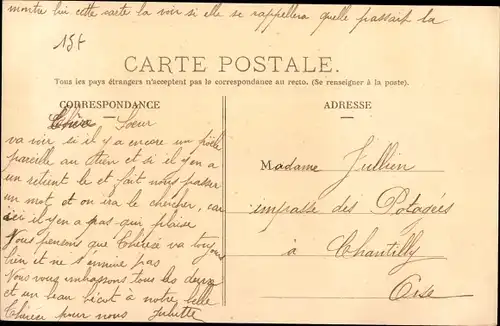 montre lui cette carte la voir si elle se rappellera quelle passait la
15f
CARTE POSTALE.
Tous les pays étrangers n'acceptent pas la correspondance au recto. (Se renseigner à la poste).
CORRESPONDANCE
ADRESSE
Chère Soeur
va voir si il y a encore un
pareille au tien et si il y en a
un retient le et fait nous passer
un mot et on ira le chercher, car
ici il y en a pas qui plaise
Nous pensons que Thérèse va toujours
bien et ne s'ennuie pas
Nous vous embrassons tous les deux
et un beau bécot à notre belle
pour nous Juliette
Madame Jullien
impasse des Potagers
à Chantilly
Oise